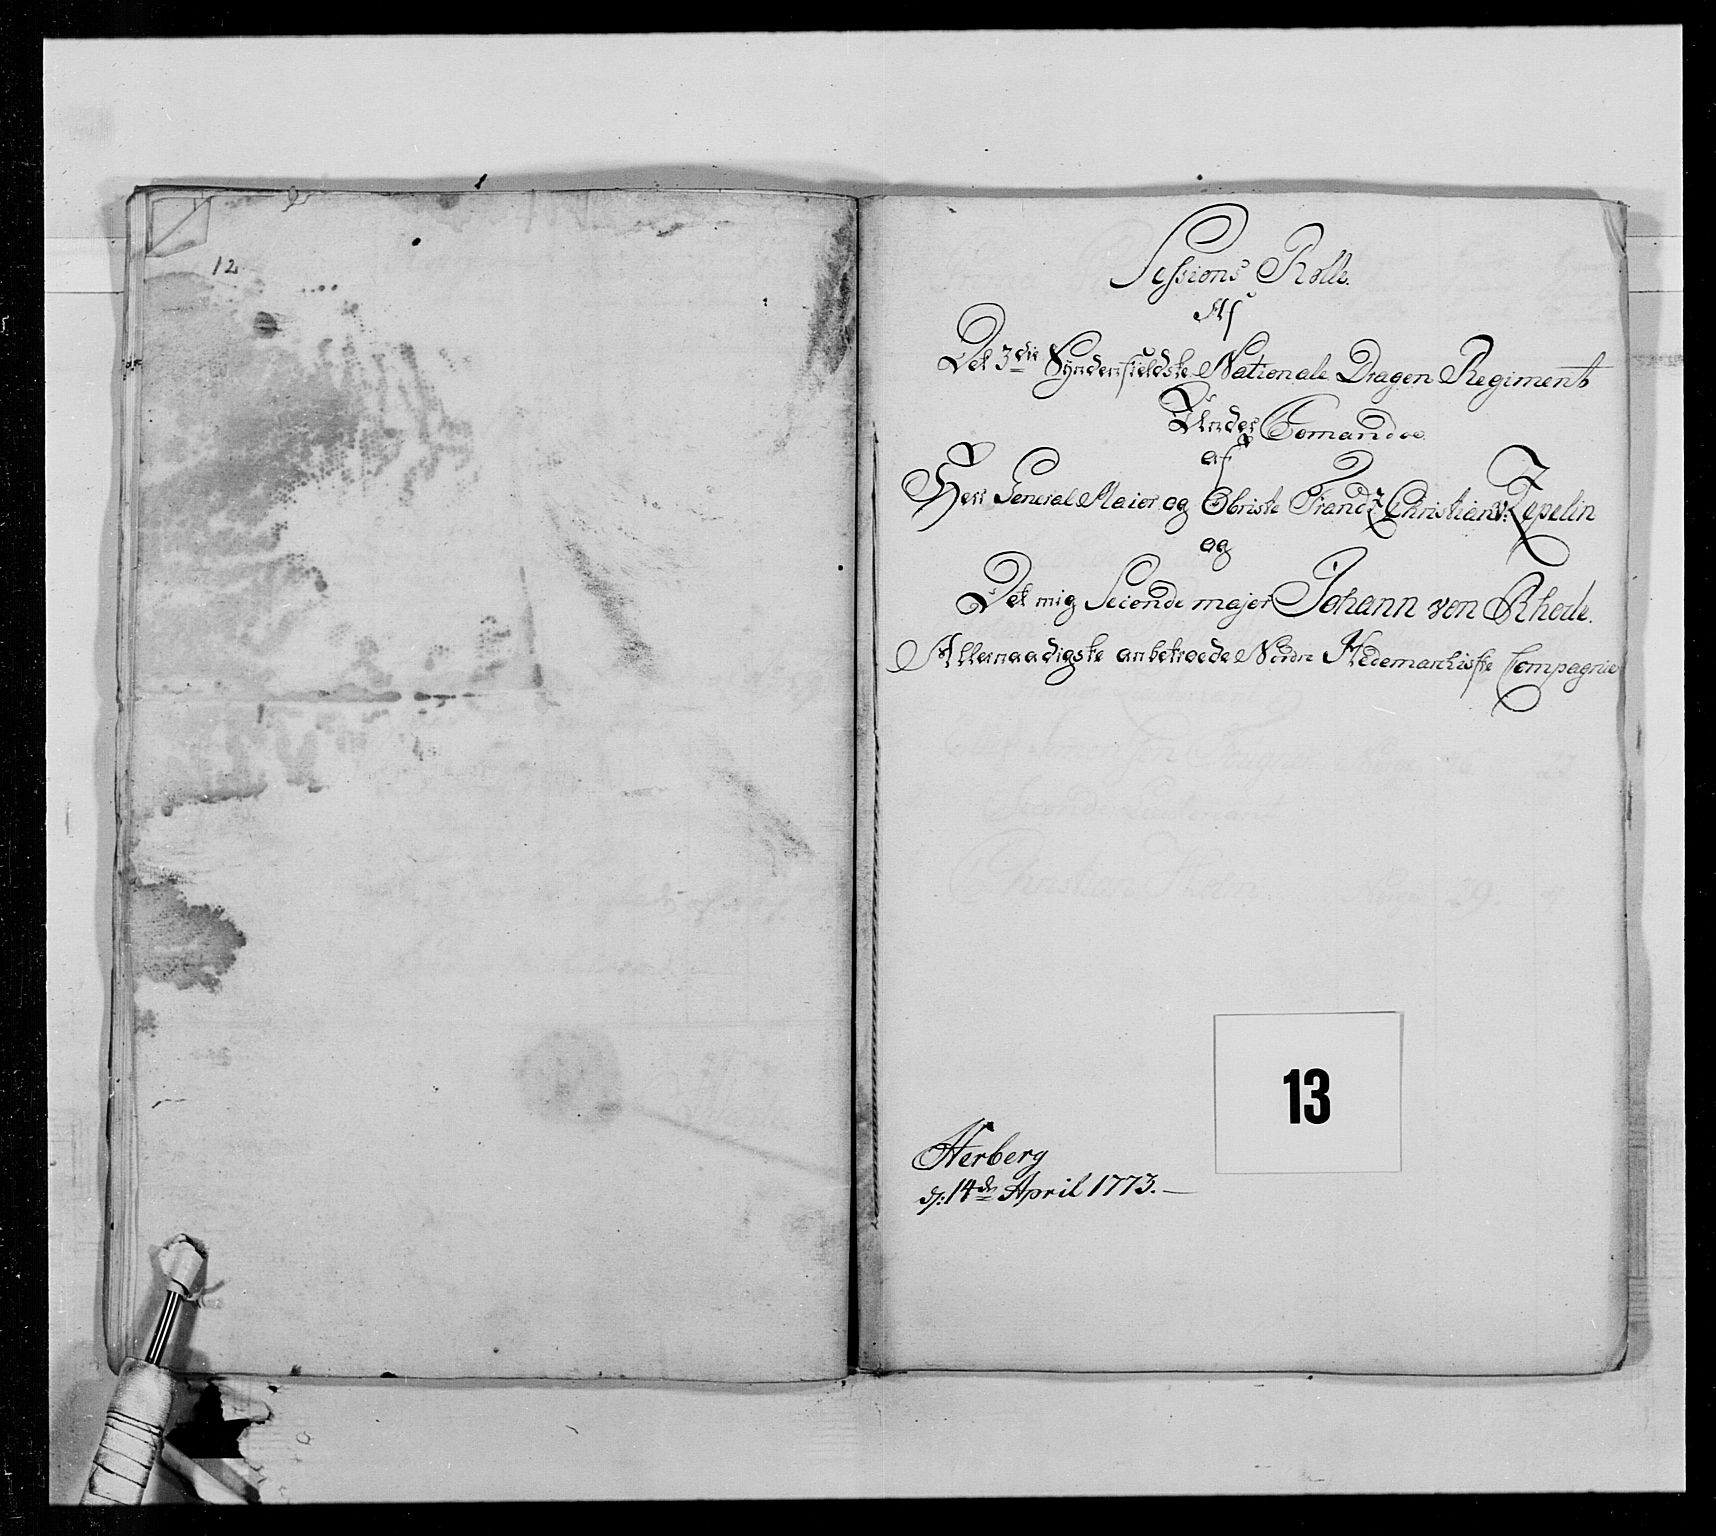 12
Sessions Rolle.
Af
Det 3die Syndenfieldske Nationale Dragon Regiment
Under Comando
af
Herr General Maior og Obriste Frandz Christian v: Zepelin
og
Det mig Seconde major Johann von Rhode.
Allernaadigste anbetroede Nordre Hedemarkiske Compagnie
13
Herberg
d: 14de April 1773.